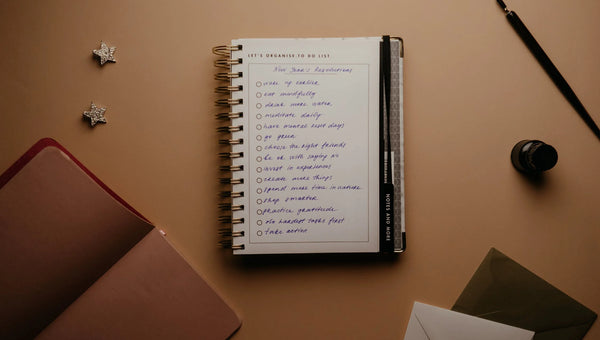 LET'S ORGANISE TO DO LIST
New Year's Resolutions
wake up earlier
eat mindfully
drink more water
meditate daily
have mental rest days
go green
choose the right friends
be ok with saying no
invest in experiences
create more things
spend more time in nature
shop smarter
practice gratitude
do hardest tasks first
take action
NOTES AND MORE